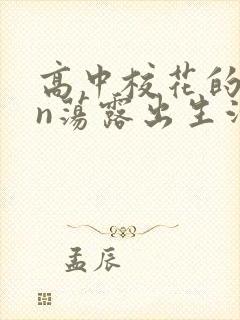 高中校花的
n荡露出生活
孟辰